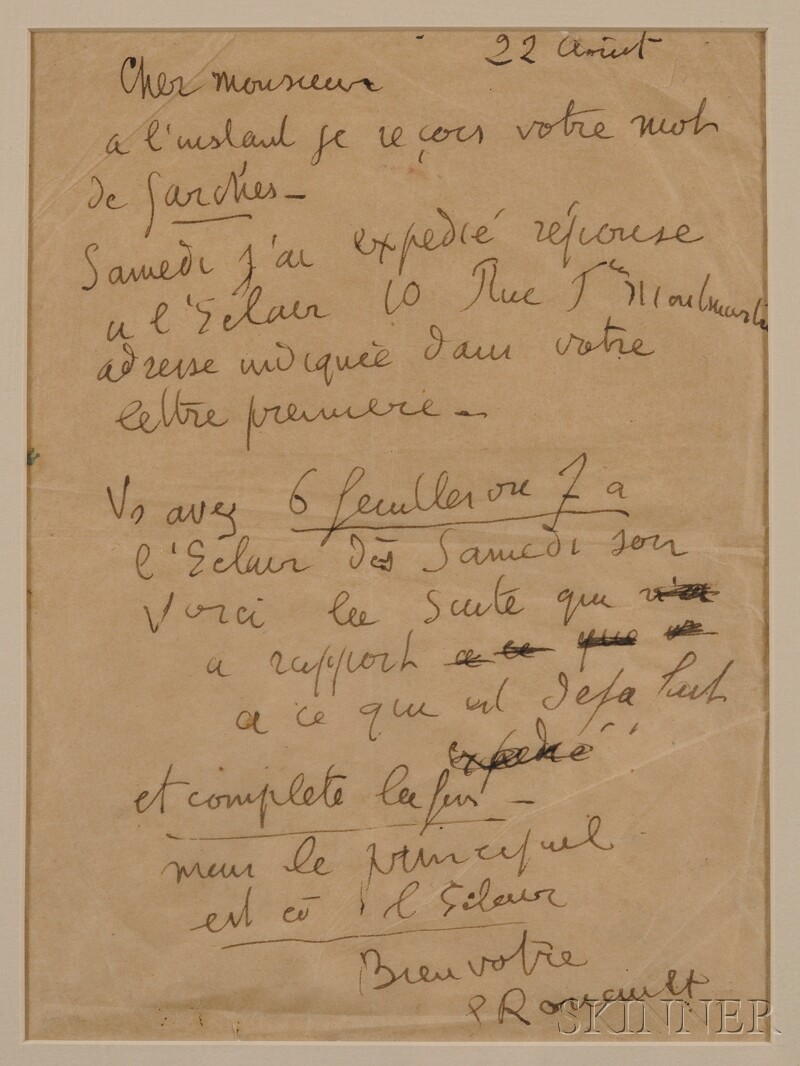 22 Août
Cher monsieur
a l'instant je reçois votre mot
de Garches –
Samedi j'ai expedié réponse
a l'Eclair 10 Rue Fg Montmartre
adresse indiquée dans votre
lettre premiere –
Vs avez 6 feuilles ou 7 a
l'Eclair dès Samedi soir
Voici la Suite qui
a rapport a ce que
a ce qui est deja fait
expedié
et complete la fin –
mais le principal
est à l'Eclair
Bien votre
GRouault
SKINNER